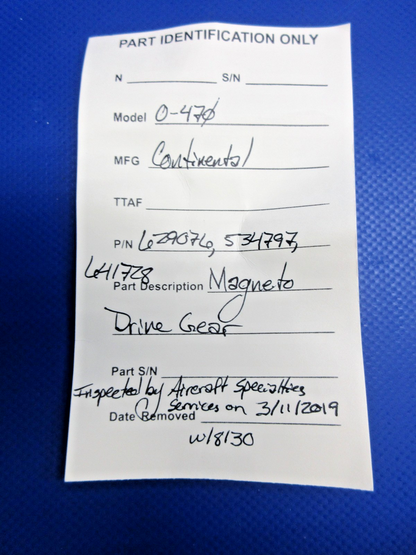 PART IDENTIFICATION ONLY
N S/N
Model O-470
MFG Continental
TTAF
P/N 629076, 534797,
641728
Part Description Magneto
Drive Gear
Part S/N
Inspected by Aircraft Specialties
Services on 3/11/2019
Date Removed
w/8130